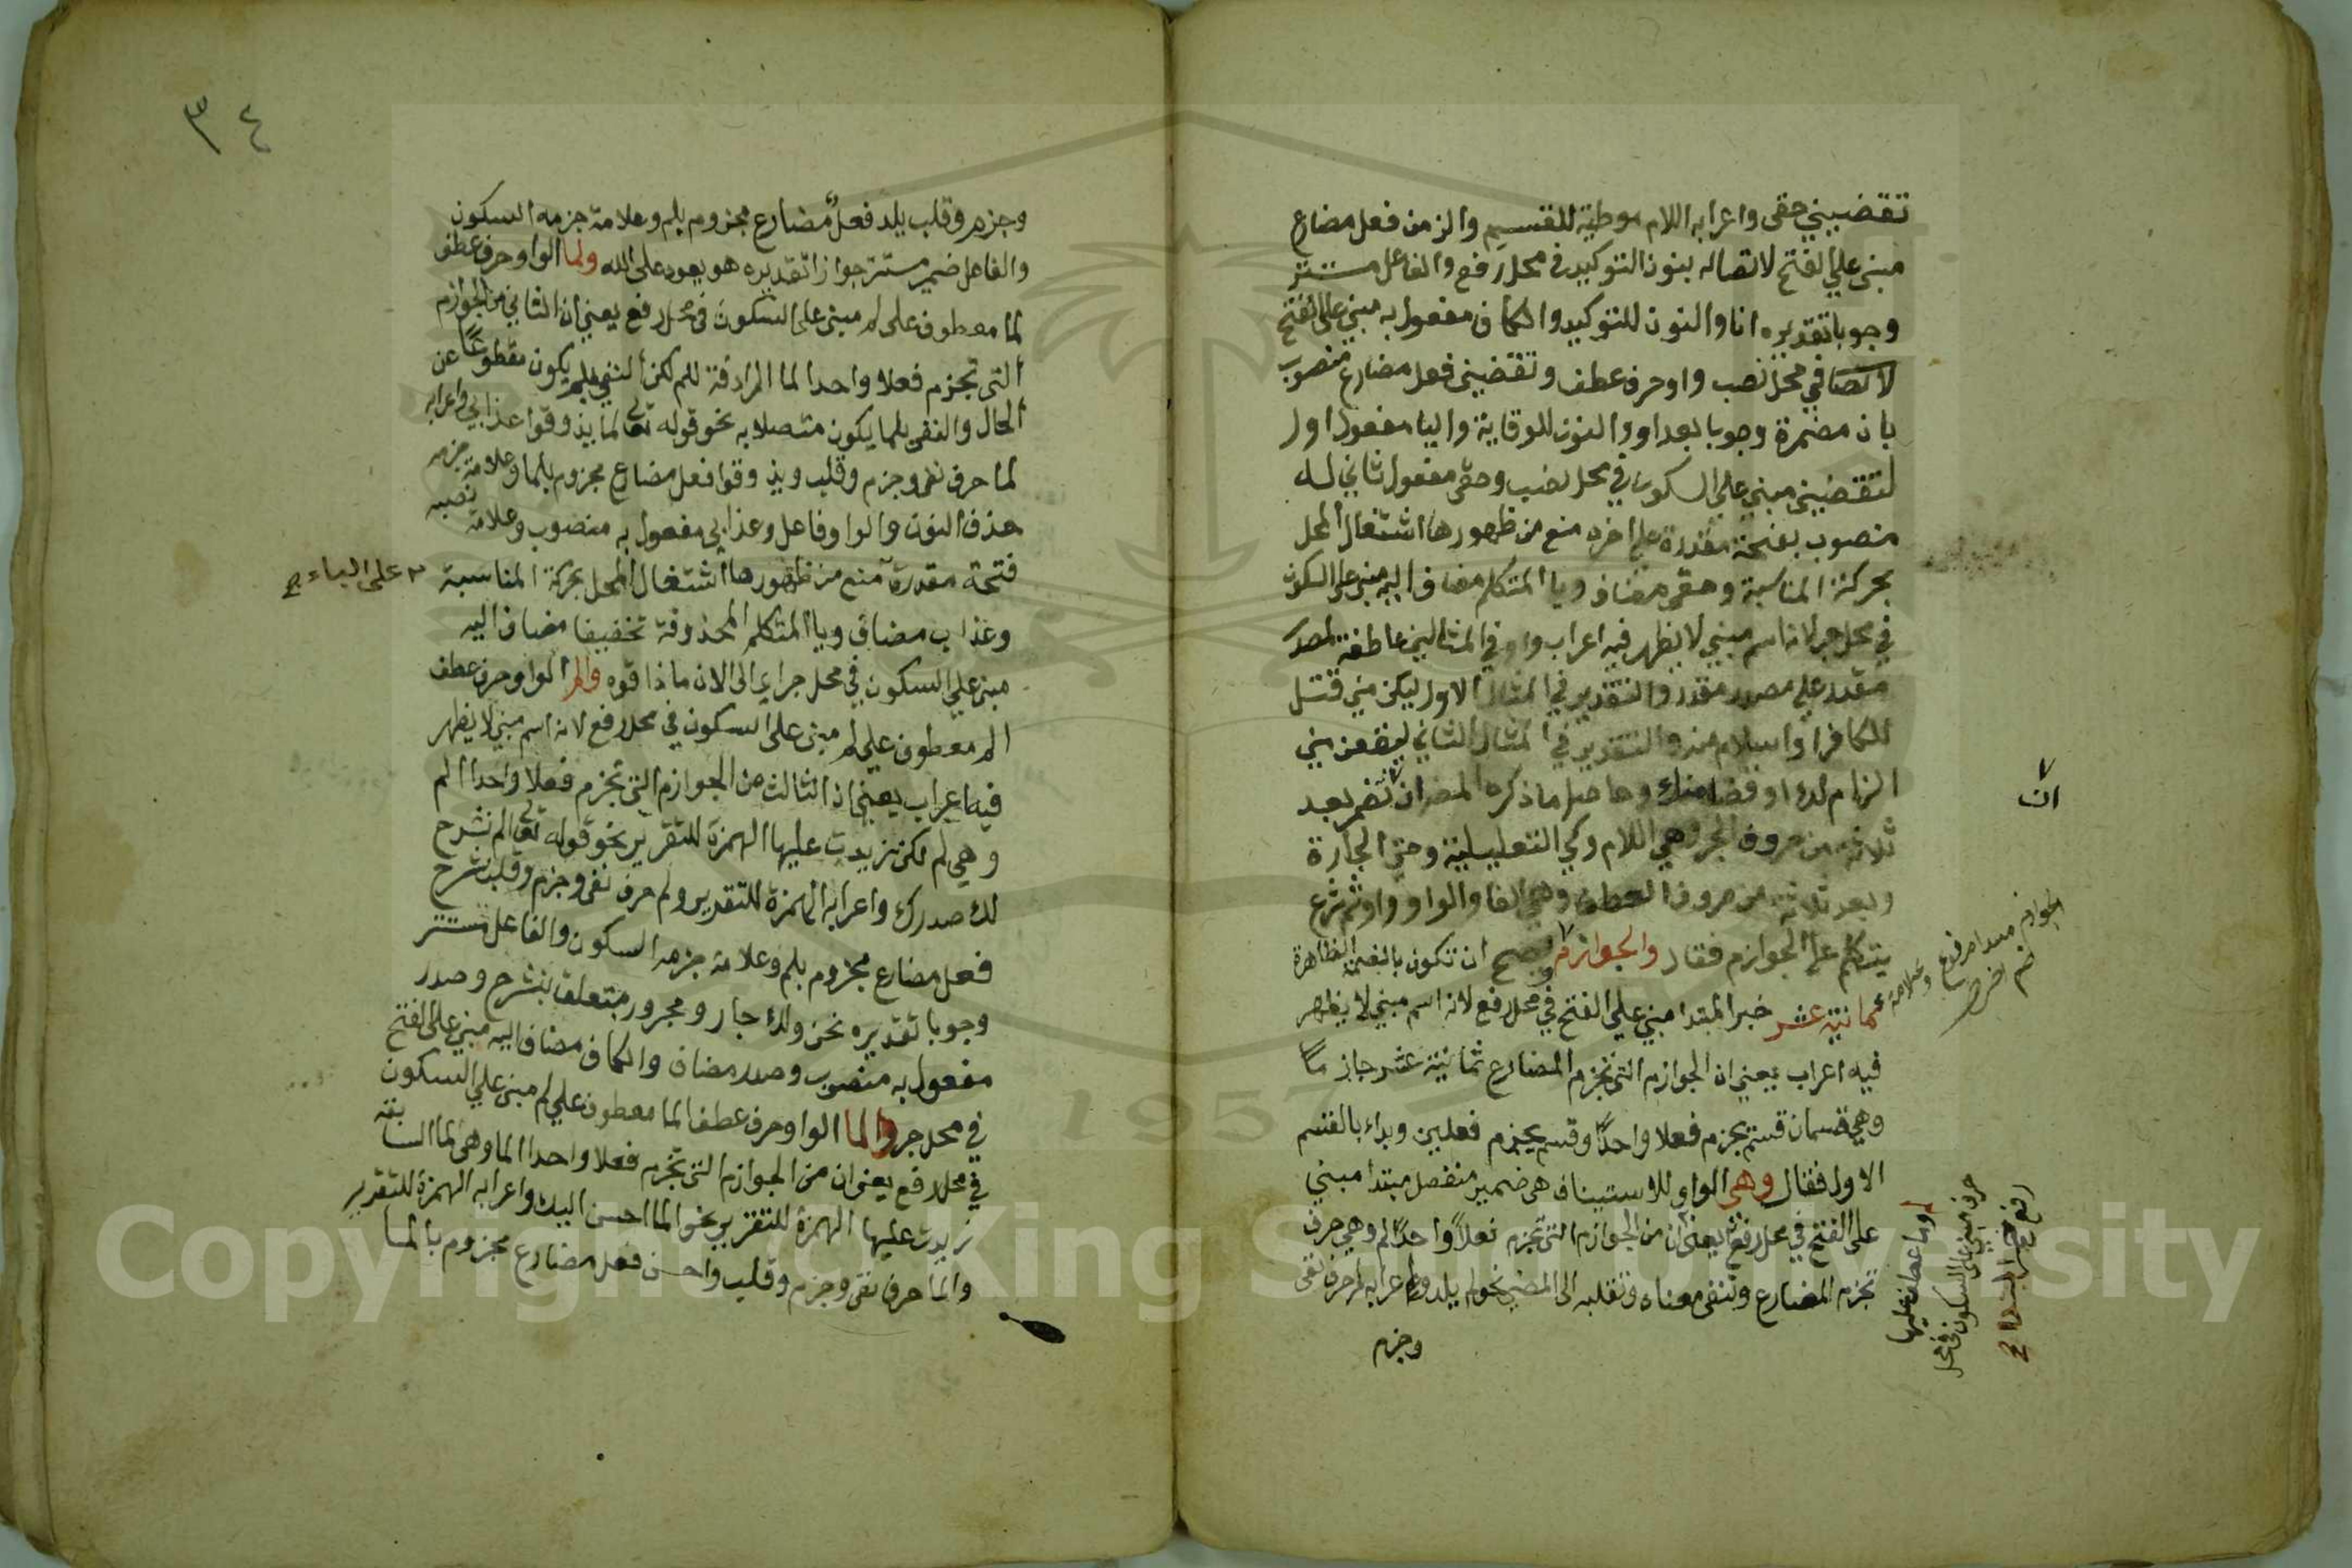 تقضيني حقي واعرابه اللام موطية للقسم والزمن فعل مضارع
مبني على الفتح لاتصاله بنون التوكيد في محل رفع والفاعل مستتر
وجوبا تقديره انا والنون للتوكيد والكاف مفعول به مبني على الفتح
في محل نصب واو حرف عطف وتقضيني فعل مضارع منصوب
بان مضمرة وجوبا بعد او والنون للوقاية واليا مفعول اول
لتقضيني مبني على السكون في محل نصب وحقي مفعول ثاني له
منصوب بفتحة مقدرة على اخره منع من ظهورها اشتغال المحل
بحركة المناسبة وحقي مضاف ويا المتكلم مضاف اليه مبني على السكون
في محل جر لانه اسم مبني لا يظهر فيه اعراب واو في المثالين عاطفة لمصدر
مقدر على مصدر مقدر والتقدير في المثال الاول ليكن مني قتل
للكافر او اسلام منه والتقدير في المثال الثاني ليقعن مني
الزام لك او قضا منك وحاصل ما ذكره المص ان تضمر بعد
ثلاثة من حروف الجر وهي اللام وكي التعليلية وحتى الجارة
وبعد ثلاثة من حروف العطف وهي الفا والواو واو ثم شرع
يتكلم على الجوازم فقال والجوازم ويصح ان تكون بالضمة الظاهرة
ثمانية عشر خبر المبتدا مبني على الفتح في محل رفع لانه اسم مبني لا يظهر
فيه اعراب يعني ان الجوازم التي تجزم المضارع ثمانية عشر جازما
وهي قسمان قسم يجزم فعلا واحدا وقسم يجزم فعلين وبداء بالقسم
الاول فقال وهي الواو للاستيناف هي ضمير منفصل مبتدا مبني
على الفتح في محل رفع يعني ان من الجوازم التي تجزم فعلا واحدا لم وهي حرف
تجزم المضارع وتنفي معناه وتقلبه الى المضي نحو لم يلد واعرابه لم حرف نفي
وجزم
ان
الجوازم مبتدا مرفوع وعلامة
لم وما عطف عليها
حرف مبني على السكون في محل
رفع خبر المبتدا
٣٤
وجزم وقلب يلد فعل مضارع مجزوم بلم وعلامة جزمه السكون
والفاعل ضمير مستتر جوازا تقديره هو يعود على الله ولما الواو حرف عطف
لما معطوف على لم مبني على السكون في محل رفع يعني ان الثاني من الجوازم
التي تجزم فعلا واحدا لما المرادفة للم لكن النفي بلم يكون مقطوعا عن
الحال والنفي بلما يكون متصلا به نحو قوله تعالى لما يذوقوا عذابي واعرابه
لما حرف نفي وجزم وقلب ويذوقوا فعل مضارع مجزوم بلما وعلامة جزمه
حذف النون والواو فاعل وعذابي مفعول به منصوب وعلامة نصبه
فتحة مقدرة منع من ظهورها اشتغال المحل بحركة المناسبة
على الياء
وعذاب مضاف ويا المتكلم المحذوفة تخفيفا مضاف اليه
مبني على السكون في محل جر اي الى الان ما ذاقوه والم الواو حرف عطف
الم معطوف على لم مبني على السكون في محل رفع لانه اسم مبني لا يظهر
فيه اعراب يعني ان الثالث من الجوازم التي تجزم فعلا واحدا الم
وهي لم لكن زيدت عليها الهمزة للتقرير نحو قوله تعالى الم نشرح
لك صدرك واعرابه الهمزة للتقرير ولم حرف نفي وجزم وقلب نشرح
فعل مضارع مجزوم بلم وعلامة جزمه السكون والفاعل مستتر
وجوبا تقديره نحن ولك جار ومجرور متعلق بنشرح وصدر
مفعول به منصوب وصدر مضاف والكاف مضاف اليه مبني على الفتح
في محل جر والما الواو حرف عطف الما معطوف على لم مبني على السكون
في محل رفع يعني ان من الجوازم التي تجزم فعلا واحدا الما وهي لما السابقة
زيدت عليها الهمزة للتقرير نحو الما احسن اليك واعرابه الهمزة للتقرير
والما حرف نفي وجزم وقلب واحسن فعل مضارع مجزوم بالما
Copyright © King Saud University
1957